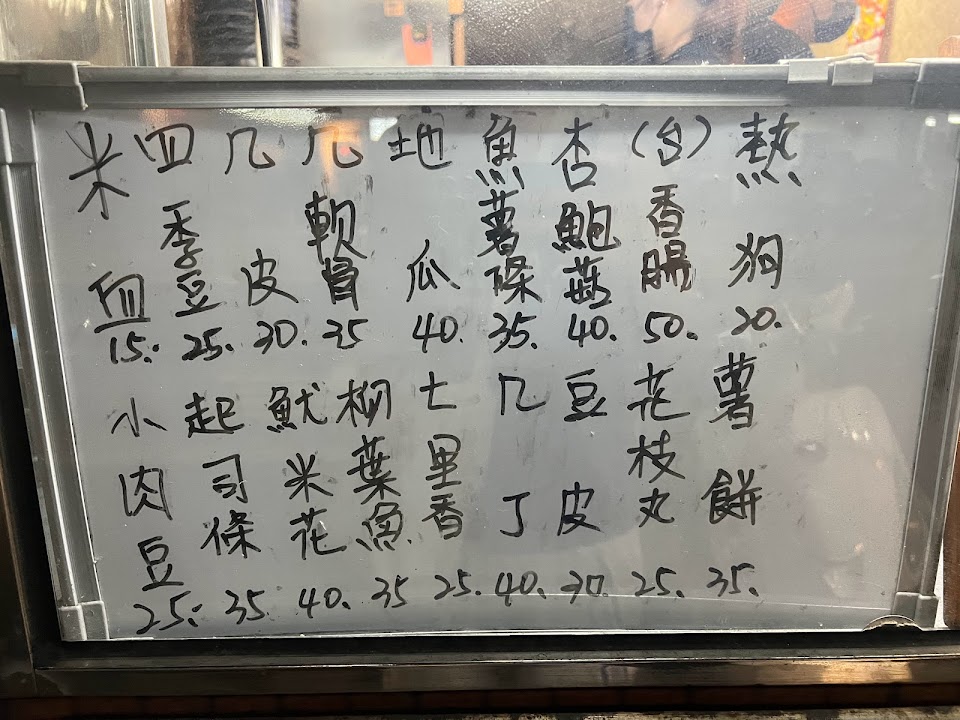 熱狗 20.
(台)香腸 50.
杏鮑菇 40.
魚薯條 35.
地瓜 40.
几軟骨 35
几皮 30.
四季豆 25.
米血 15.
薯餅 35.
花枝丸 25.
豆皮 30.
几丁 40.
七里香 25.
柳葉魚 35
魷米花 40.
起司條 35
小肉豆 25.